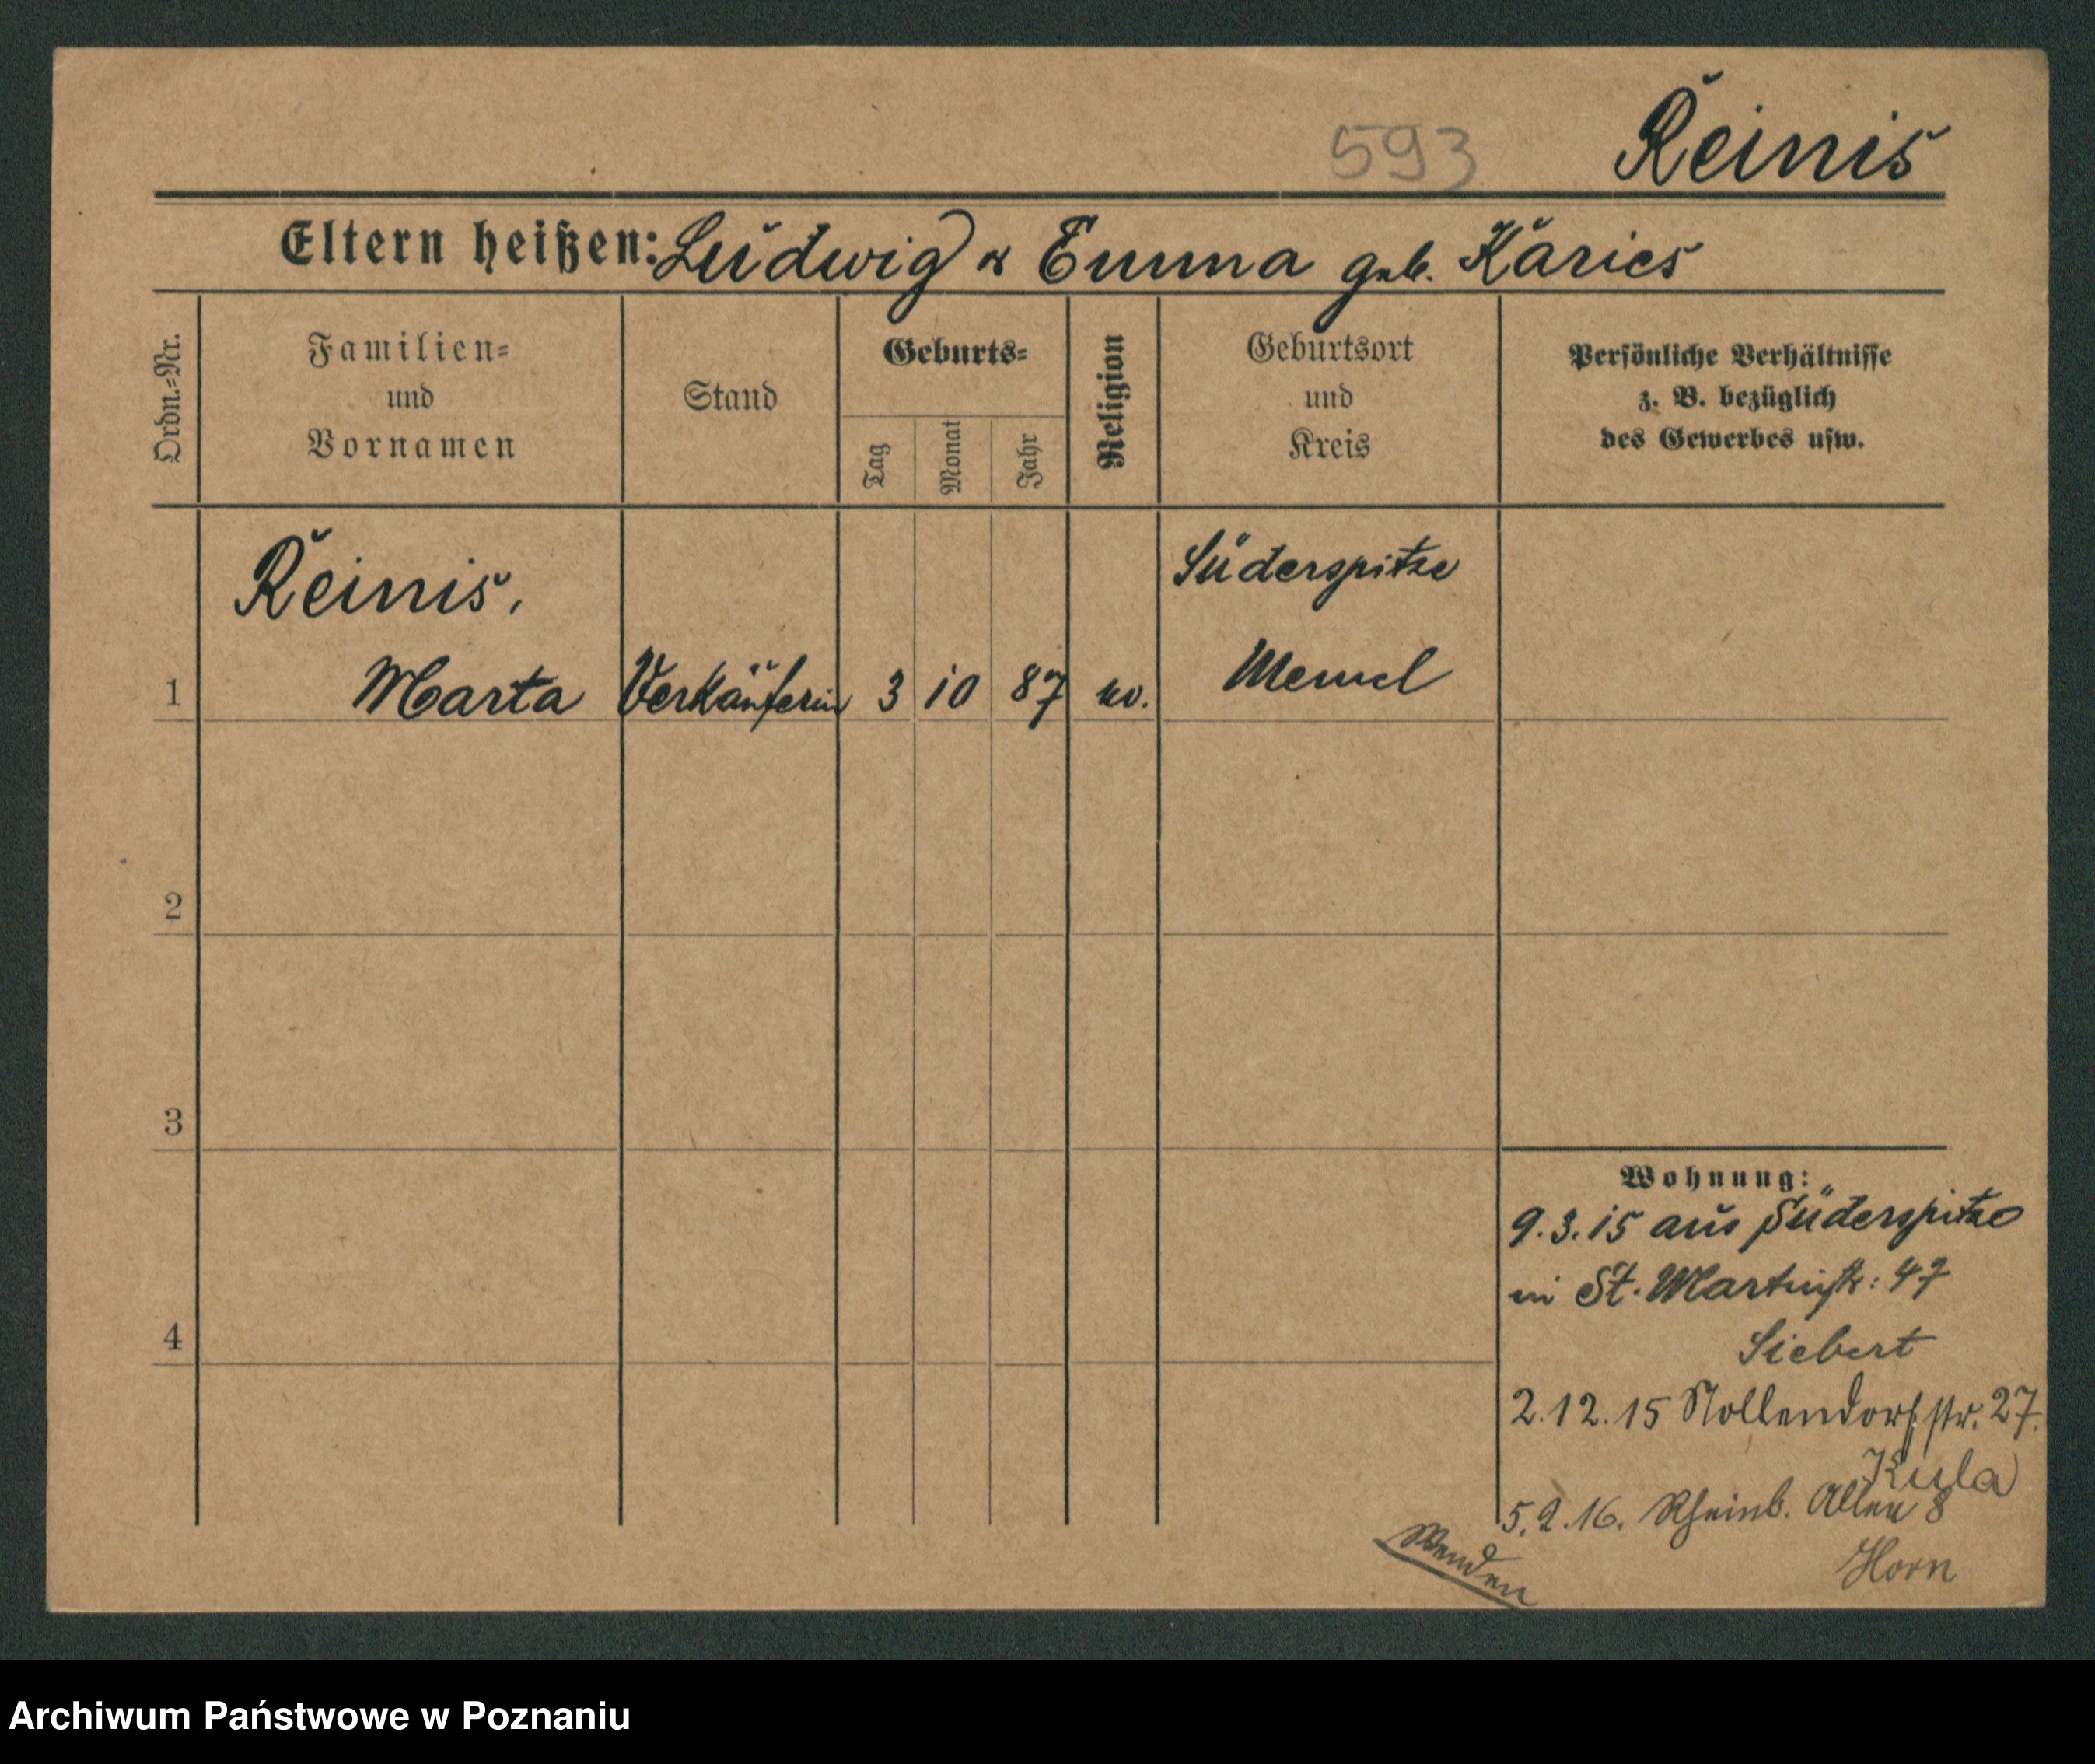 593 Reinis
Eltern heißen: Ludwig & Emma geb. Karies
Ordn.-Nr.
Familien-
und
Vornamen
Stand
Geburts-
Tag
Monat
Jahr
Religion
Geburtsort
und
Kreis
Persönliche Verhältnisse
z. B. bezüglich
des Gewerbes usw.
Reinis, Süderspitze
1 Marta Verkäuferin 3 10 87 ev. Memel
2
3
4
Wohnung:
9.3.15 aus Süderspitze
in St. Martinstr: 47
Siebert
2.12.15 Nollendorfstr. 27.
Kula
5.2.16. Rheinb. Allee 8
Horn
Wenden
Archiwum Państwowe w Poznaniu